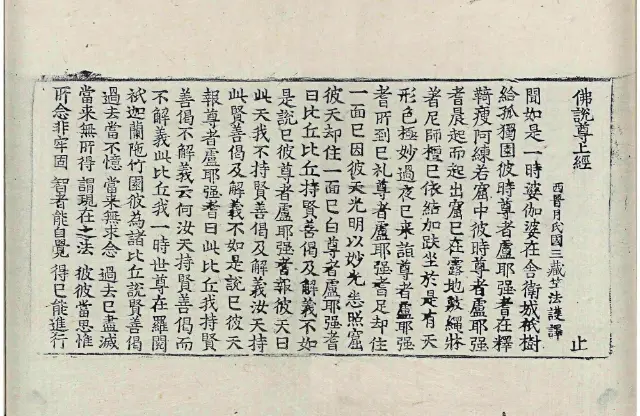 佛說尊上經 止
西晉月氏國三藏竺法護譯
聞如是一時婆伽婆在舍衛城祇樹
給孤獨園彼時尊者盧耶强耆在釋
鞹瘦阿練若窟中彼時尊者盧耶强
耆晨起而起出窟已在露地敷繩牀
著尼師檀已依結加趺坐於是有天
形色極妙過夜已來詣尊者盧耶强
耆所到已礼尊者盧耶强耆足却住
一面已因彼天光明以妙光悉照窟
彼天却住一面已白尊者盧耶强耆
曰比丘比丘持賢善偈及解義不如
是說已彼尊者盧耶强耆報彼天曰
此天我不持賢善偈及解義汝天持
此賢善偈及解義不如是說已彼天
報尊者盧耶强耆曰此比丘我持賢
善偈不解義云何汝天持賢善偈而
不解義此比丘我一時世尊在羅閱
祇迦蘭陁竹園彼為諸比丘說賢善偈
過去當不憶 當來無求念 過去已盡滅
當來無所得 謂現在之法 彼彼當思惟
所念非牢固 智者能自覺 得已能進行